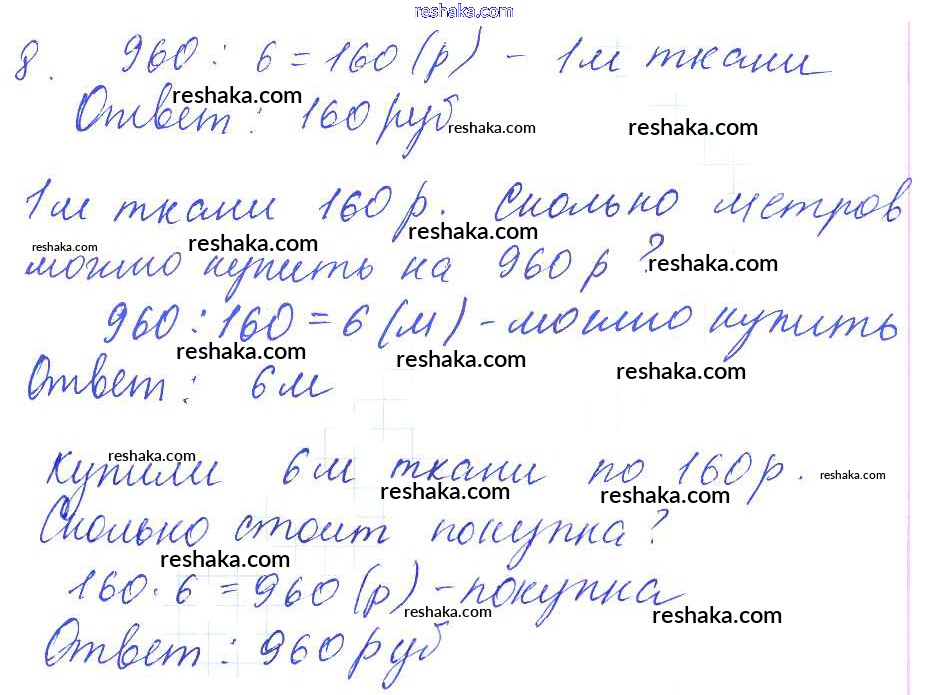 reshaka.com
8. 960 : 6 = 160 (р) - 1м ткани
reshaka.com
Ответ: 160 руб
reshaka.com
reshaka.com
1м ткани 160 р. Сколько метров
reshaka.com
reshaka.com
reshaka.com
можно купить на 960 р ?
reshaka.com
960 : 160 = 6 (м) - можно купить
reshaka.com
reshaka.com
reshaka.com
Ответ: 6м
reshaka.com
Купили 6м ткани по 160 р.
reshaka.com
reshaka.com
reshaka.com
Сколько стоит покупка?
reshaka.com
160 · 6 = 960 (р) - покупка
reshaka.com
reshaka.com
Ответ: 960 руб